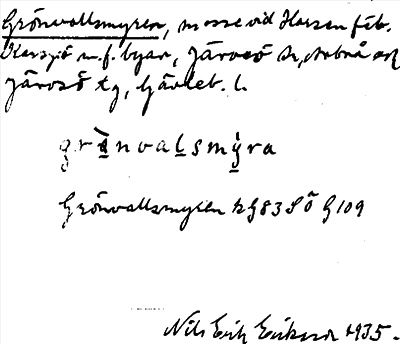 Grönvallsmyren, mosse vid Harsen fäb.
Karsjö m.fl. byar, Järvsö sn, Arbrå och
Järvsö tg, Gävleb. l.
grönvalsmýra
Grönvallsmyren kG83SÖ G109
Nils Erik Eriksson 1935.